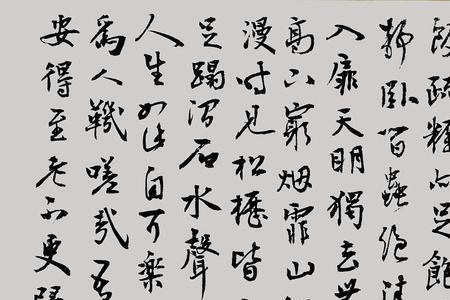 飯疏糲亦足飽
靜臥百蟲絕清
入扉天明獨去無
高下窮烟霏山
漫時見松櫪皆
足蹋澗石水聲
人生如此自可樂
爲人鞿嗟哉吾
安得至老不更歸